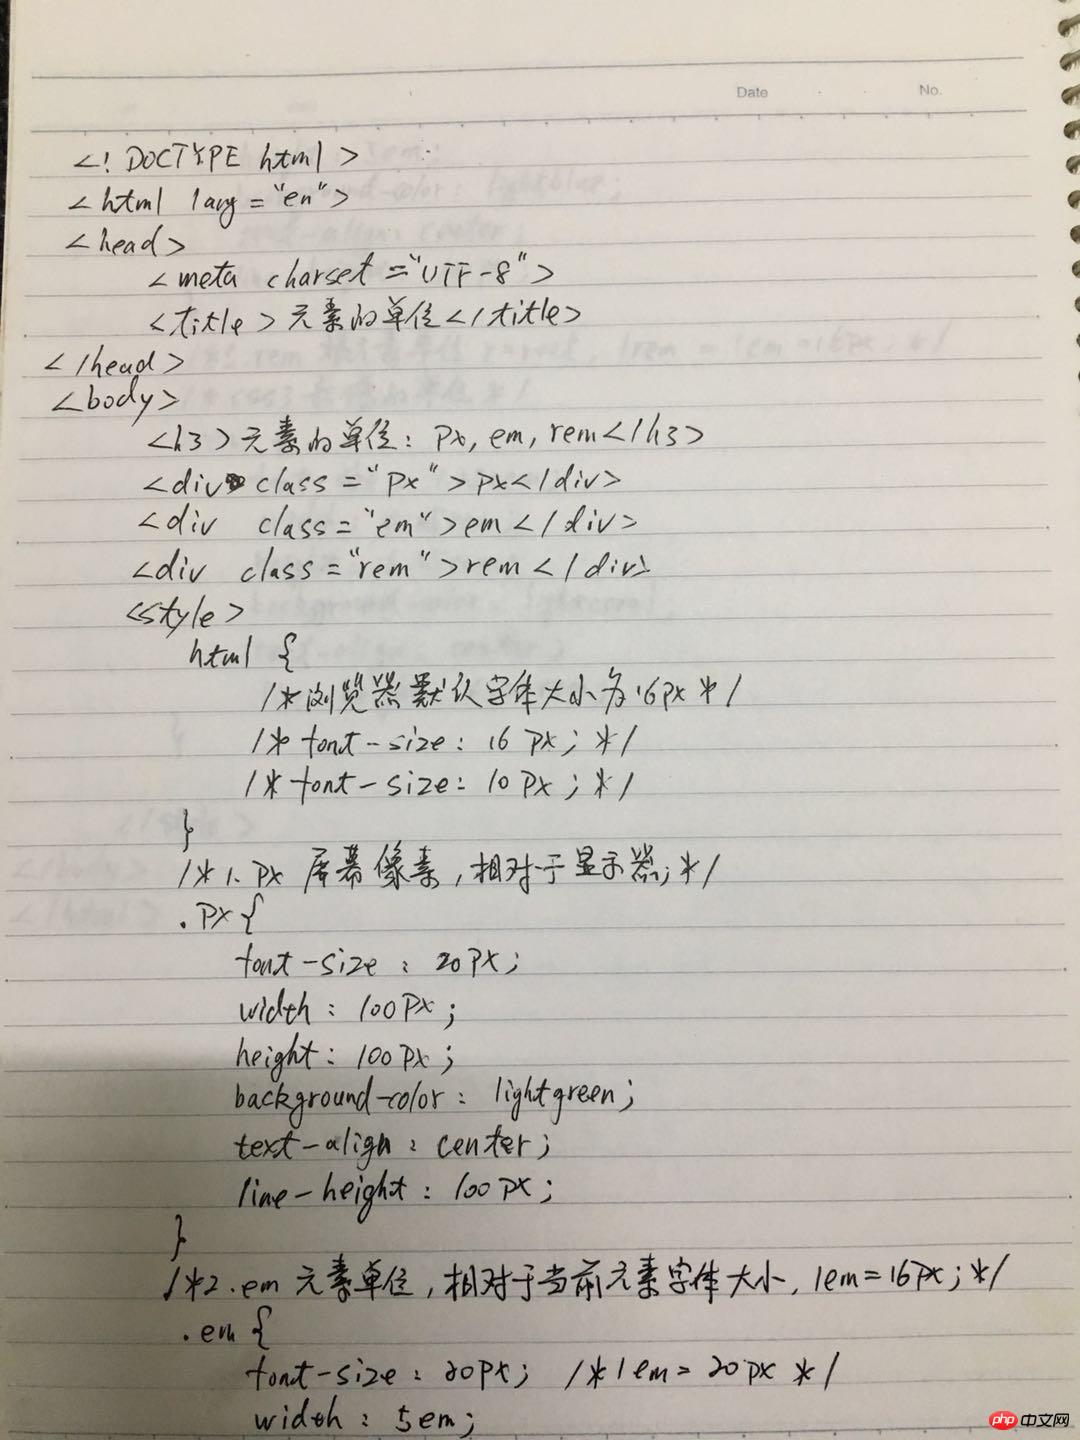 Date No.
<! DOCTYPE html>
<html lang="en">
<head>
<meta charset="UTF-8">
<title>元素的单位</title>
</head>
<body>
<h3>元素的单位: px, em, rem</h3>
<div class="px">px</div>
<div class="em">em</div>
<div class="rem">rem</div>
<style>
html {
/*浏览器默认字体大小为16px*/
/* font-size: 16px; */
/* font-size: 10px; */
}
/*1、px 屏幕像素,相对于显示器;*/
.px{
font-size: 20px;
width: 100px;
height: 100px;
background-color: lightgreen;
text-align: center;
line-height: 100px;
}
/*2.em 元素单位,相对于当前元素字体大小,1em=16px;*/
.em {
font-size: 20px; /*1em=20px*/
width: 5em;
php 中文网